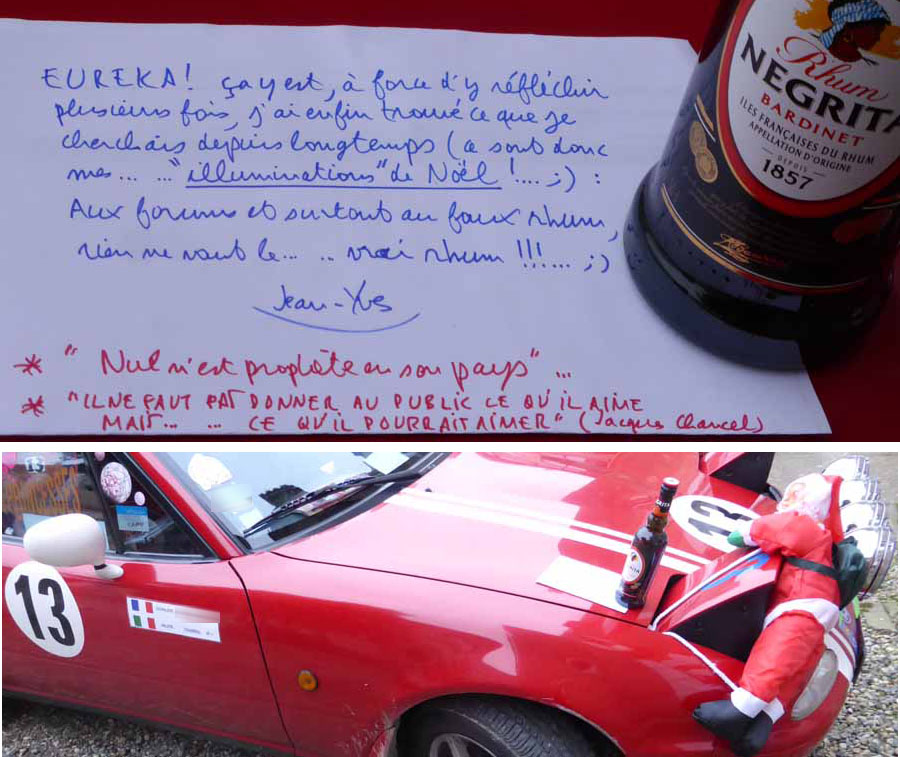 EUREKA! ça y est, à force d'y réfléchir
plusieurs fois, j'ai enfin trouvé ce que je
cherchais depuis longtemps (ce sont donc
mes... ..."illuminations" de Noël !... ;) :
Aux forums et surtout au faux rhum,
rien ne vaut le... .. vrai rhum !!!... ;)
Jean-Yves
* "Nul n'est prophète en son pays" ...
* "IL NE FAUT PAS DONNER AU PUBLIC CE QU'IL AIME
MAIS... ... CE QU'IL POURRAIT AIMER" (Jacques Chancel)
Rhum
NEGRITA
BARDINET
ILES FRANÇAISES DU RHUM
APPELLATION D'ORIGINE
- DEPUIS -
1857
13
13